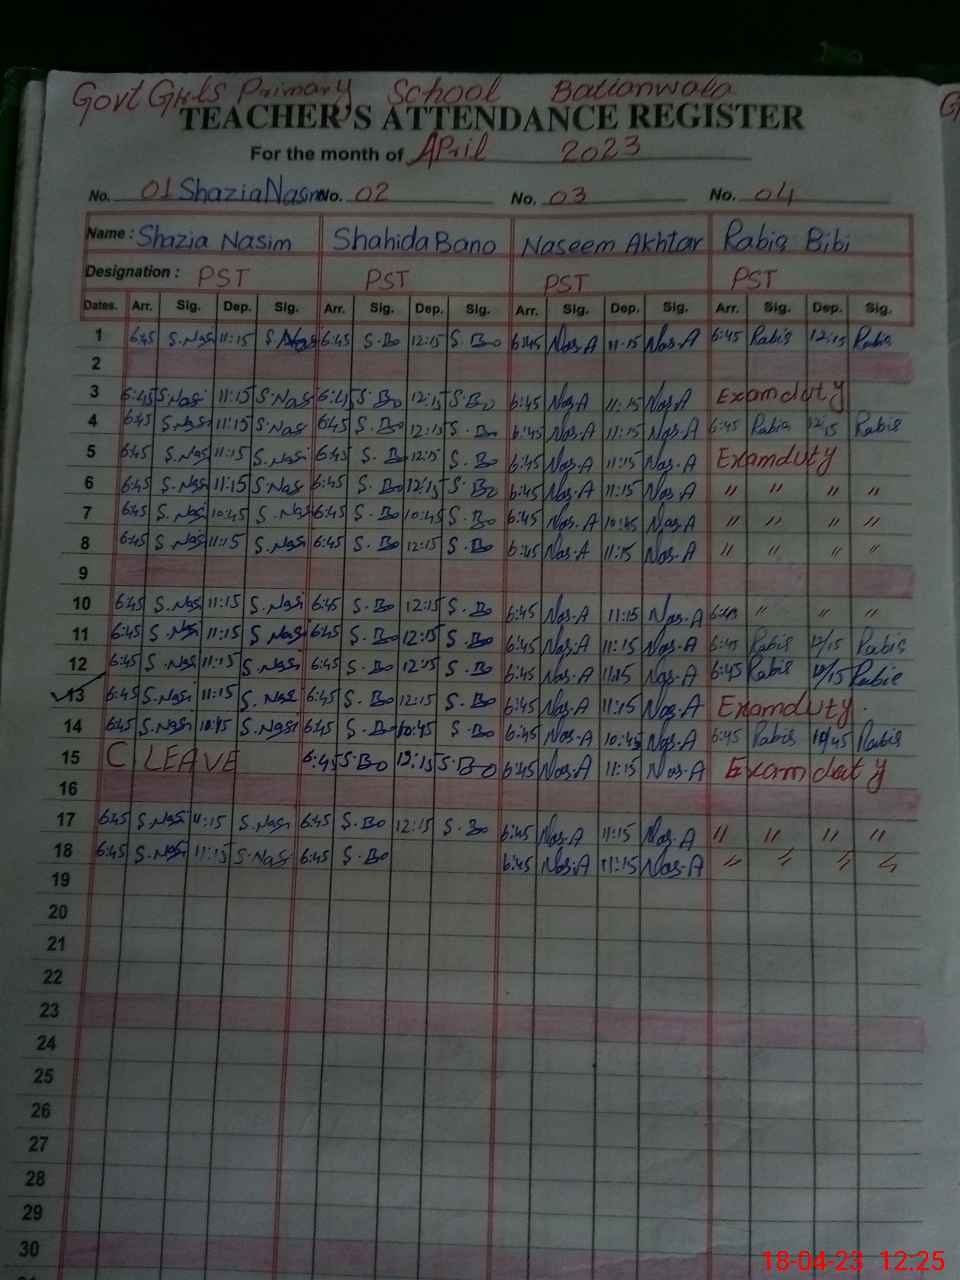 Govt Girls Primary School Ballanwala
TEACHER'S ATTENDANCE REGISTER
For the month of April 2023
No. 01 Shazia Nasim No. 02 No. 03 No. 04
Name : Shazia Nasim Shahida Bano Naseem Akhtar Rabia Bibi
Designation : PST PST PST PST
Dates. Arr. Sig. Dep. Sig. Arr. Sig. Dep. Sig. Arr. Sig. Dep. Sig. Arr. Sig. Dep. Sig.
1 6:45 S.Nasi 11:15 S.Nasi 6:45 S.Bo 12:15 S.Bo 6:45 Nas.A 11:15 Nas.A 6:45 Rabia 12:15 Rabia
2
3 6:45 S.Nasi 11:15 S.Nasi 6:45 S.Bo 12:15 S.Bo 6:45 Nas.A 11:15 Nas.A Exam duty
4 6:45 S.Nasi 11:15 S.Nasi 6:45 S.Bo 12:15 S.Bo 6:45 Nas.A 11:15 Nas.A 6:45 Rabia 12:15 Rabia
5 6:45 S.Nasi 11:15 S.Nasi 6:45 S.Bo 12:15 S.Bo 6:45 Nas.A 11:15 Nas.A Exam duty
6 6:45 S.Nasi 11:15 S.Nasi 6:45 S.Bo 12:15 S.Bo 6:45 Nas.A 11:15 Nas.A " " " "
7 6:45 S.Nasi 10:45 S.Nasi 6:45 S.Bo 10:45 S.Bo 6:45 Nas.A 10:45 Nas.A " " " "
8 6:45 S.Nasi 11:15 S.Nasi 6:45 S.Bo 12:15 S.Bo 6:45 Nas.A 11:15 Nas.A " " " "
9
10 6:45 S.Nasi 11:15 S.Nasi 6:45 S.Bo 12:15 S.Bo 6:45 Nas.A 11:15 Nas.A " " "
11 6:45 S.Nasi 11:15 S.Nasi 6:45 S.Bo 12:15 S.Bo 6:45 Nas.A 11:15 Nas.A 6:45 Rabia 12/15 Rabia
12 6:45 S.Nasi 11:15 S.Nasi 6:45 S.Bo 12:15 S.Bo 6:45 Nas.A 11:15 Nas.A 6:45 Rabia 12/15 Rabia
13 6:45 S.Nasi 11:15 S.Nasi 6:45 S.Bo 12:15 S.Bo 6:45 Nas.A 11:15 Nas.A Exam duty.
14 6:45 S.Nasi 10:45 S.Nasi 6:45 S.Bo 10:45 S.Bo 6:45 Nas.A 10:45 Nas.A 6:45 Rabia 10/45 Rabia
15 C LEAVE 6:45 S.Bo 12:15 S.Bo 6:45 Nas.A 11:15 Nas.A Exam duty
16
17 6:45 S.Nasi 11:15 S.Nasi 6:45 S.Bo 12:15 S.Bo 6:45 Nas.A 11:15 Nas.A " " " "
18 6:45 S.Nasi 11:15 S.Nasi 6:45 S.Bo 6:45 Nas.A 11:15 Nas.A " " " "
19
20
21
22
23
24
25
26
27
28
29
30
18-04-23 12.25